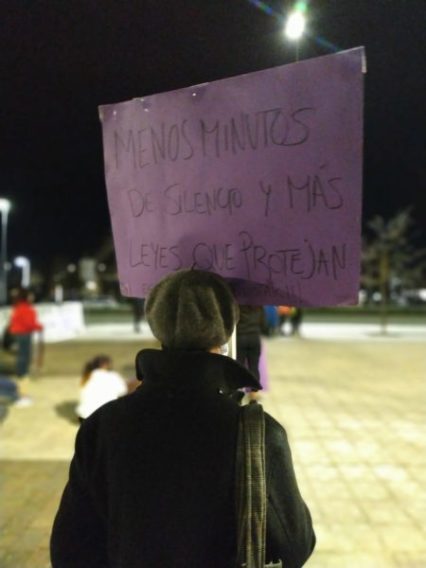 MENOS MINUTOS
DE SILENCIO Y MÁS
LEYES QUE PROTEJAN